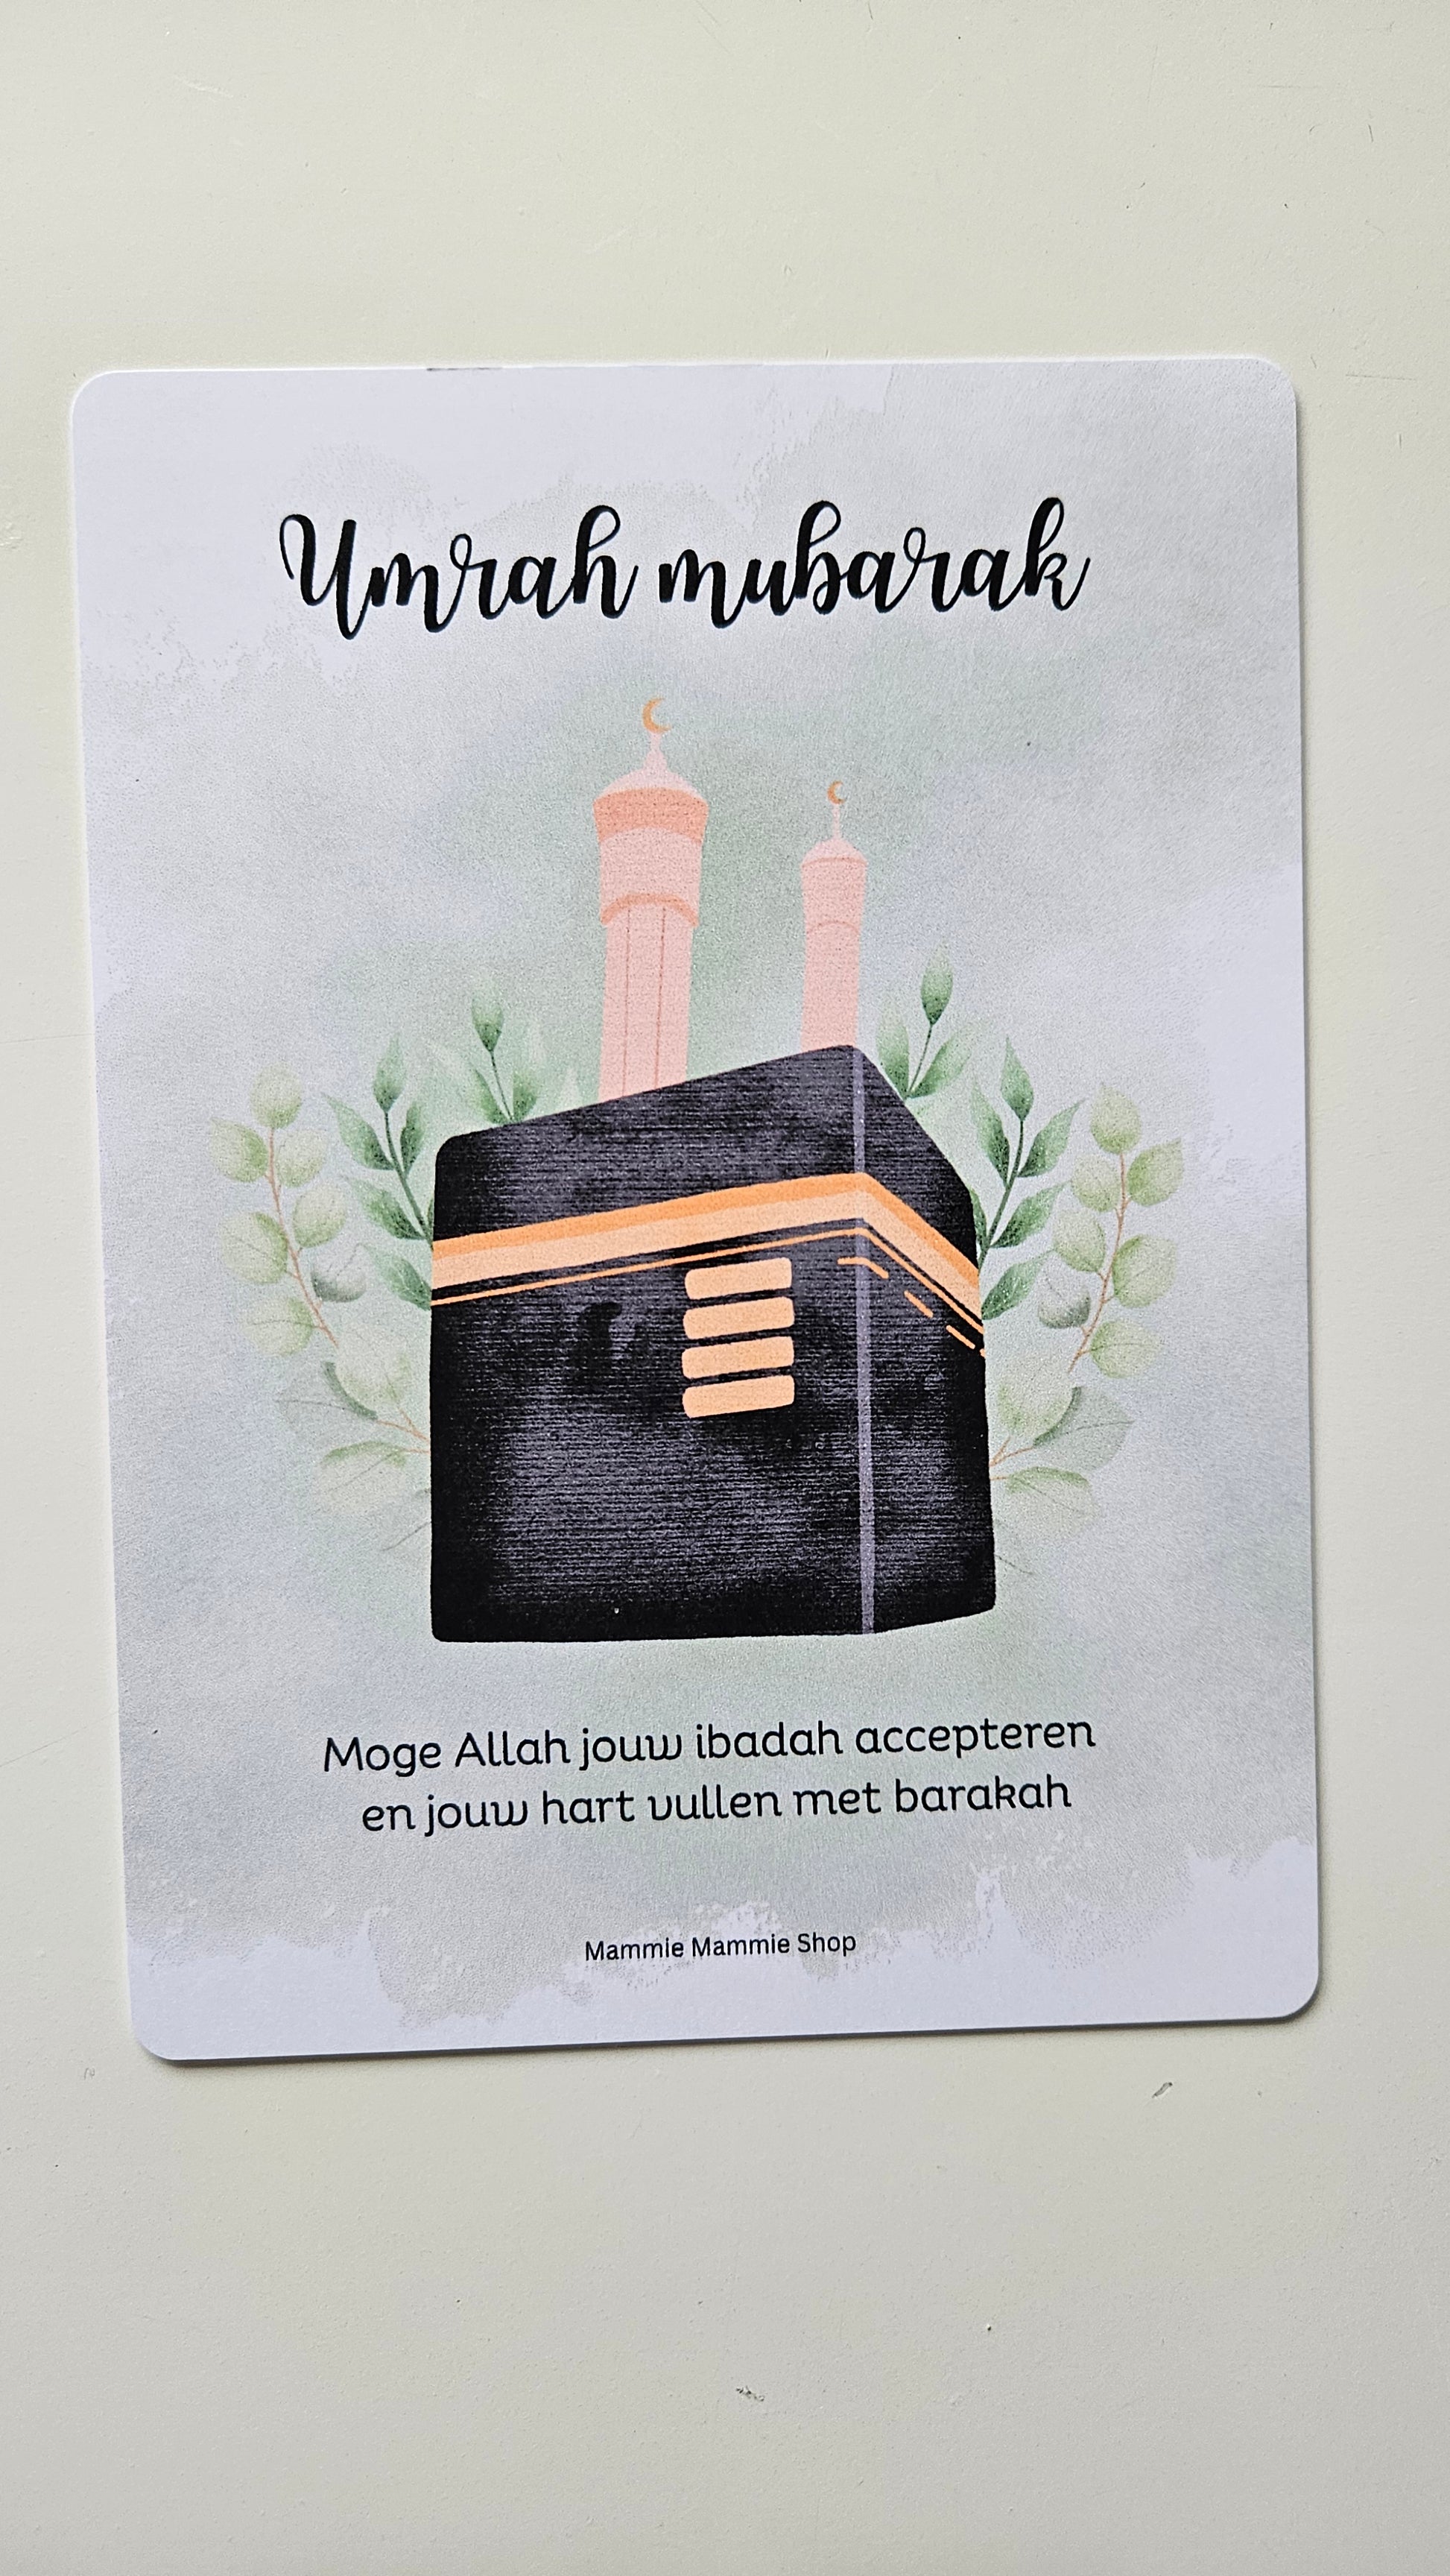 Umrah mubarak
Moge Allah jouw ibadah accepteren
en jouw hart vullen met barakah
Mammie Mammie Shop